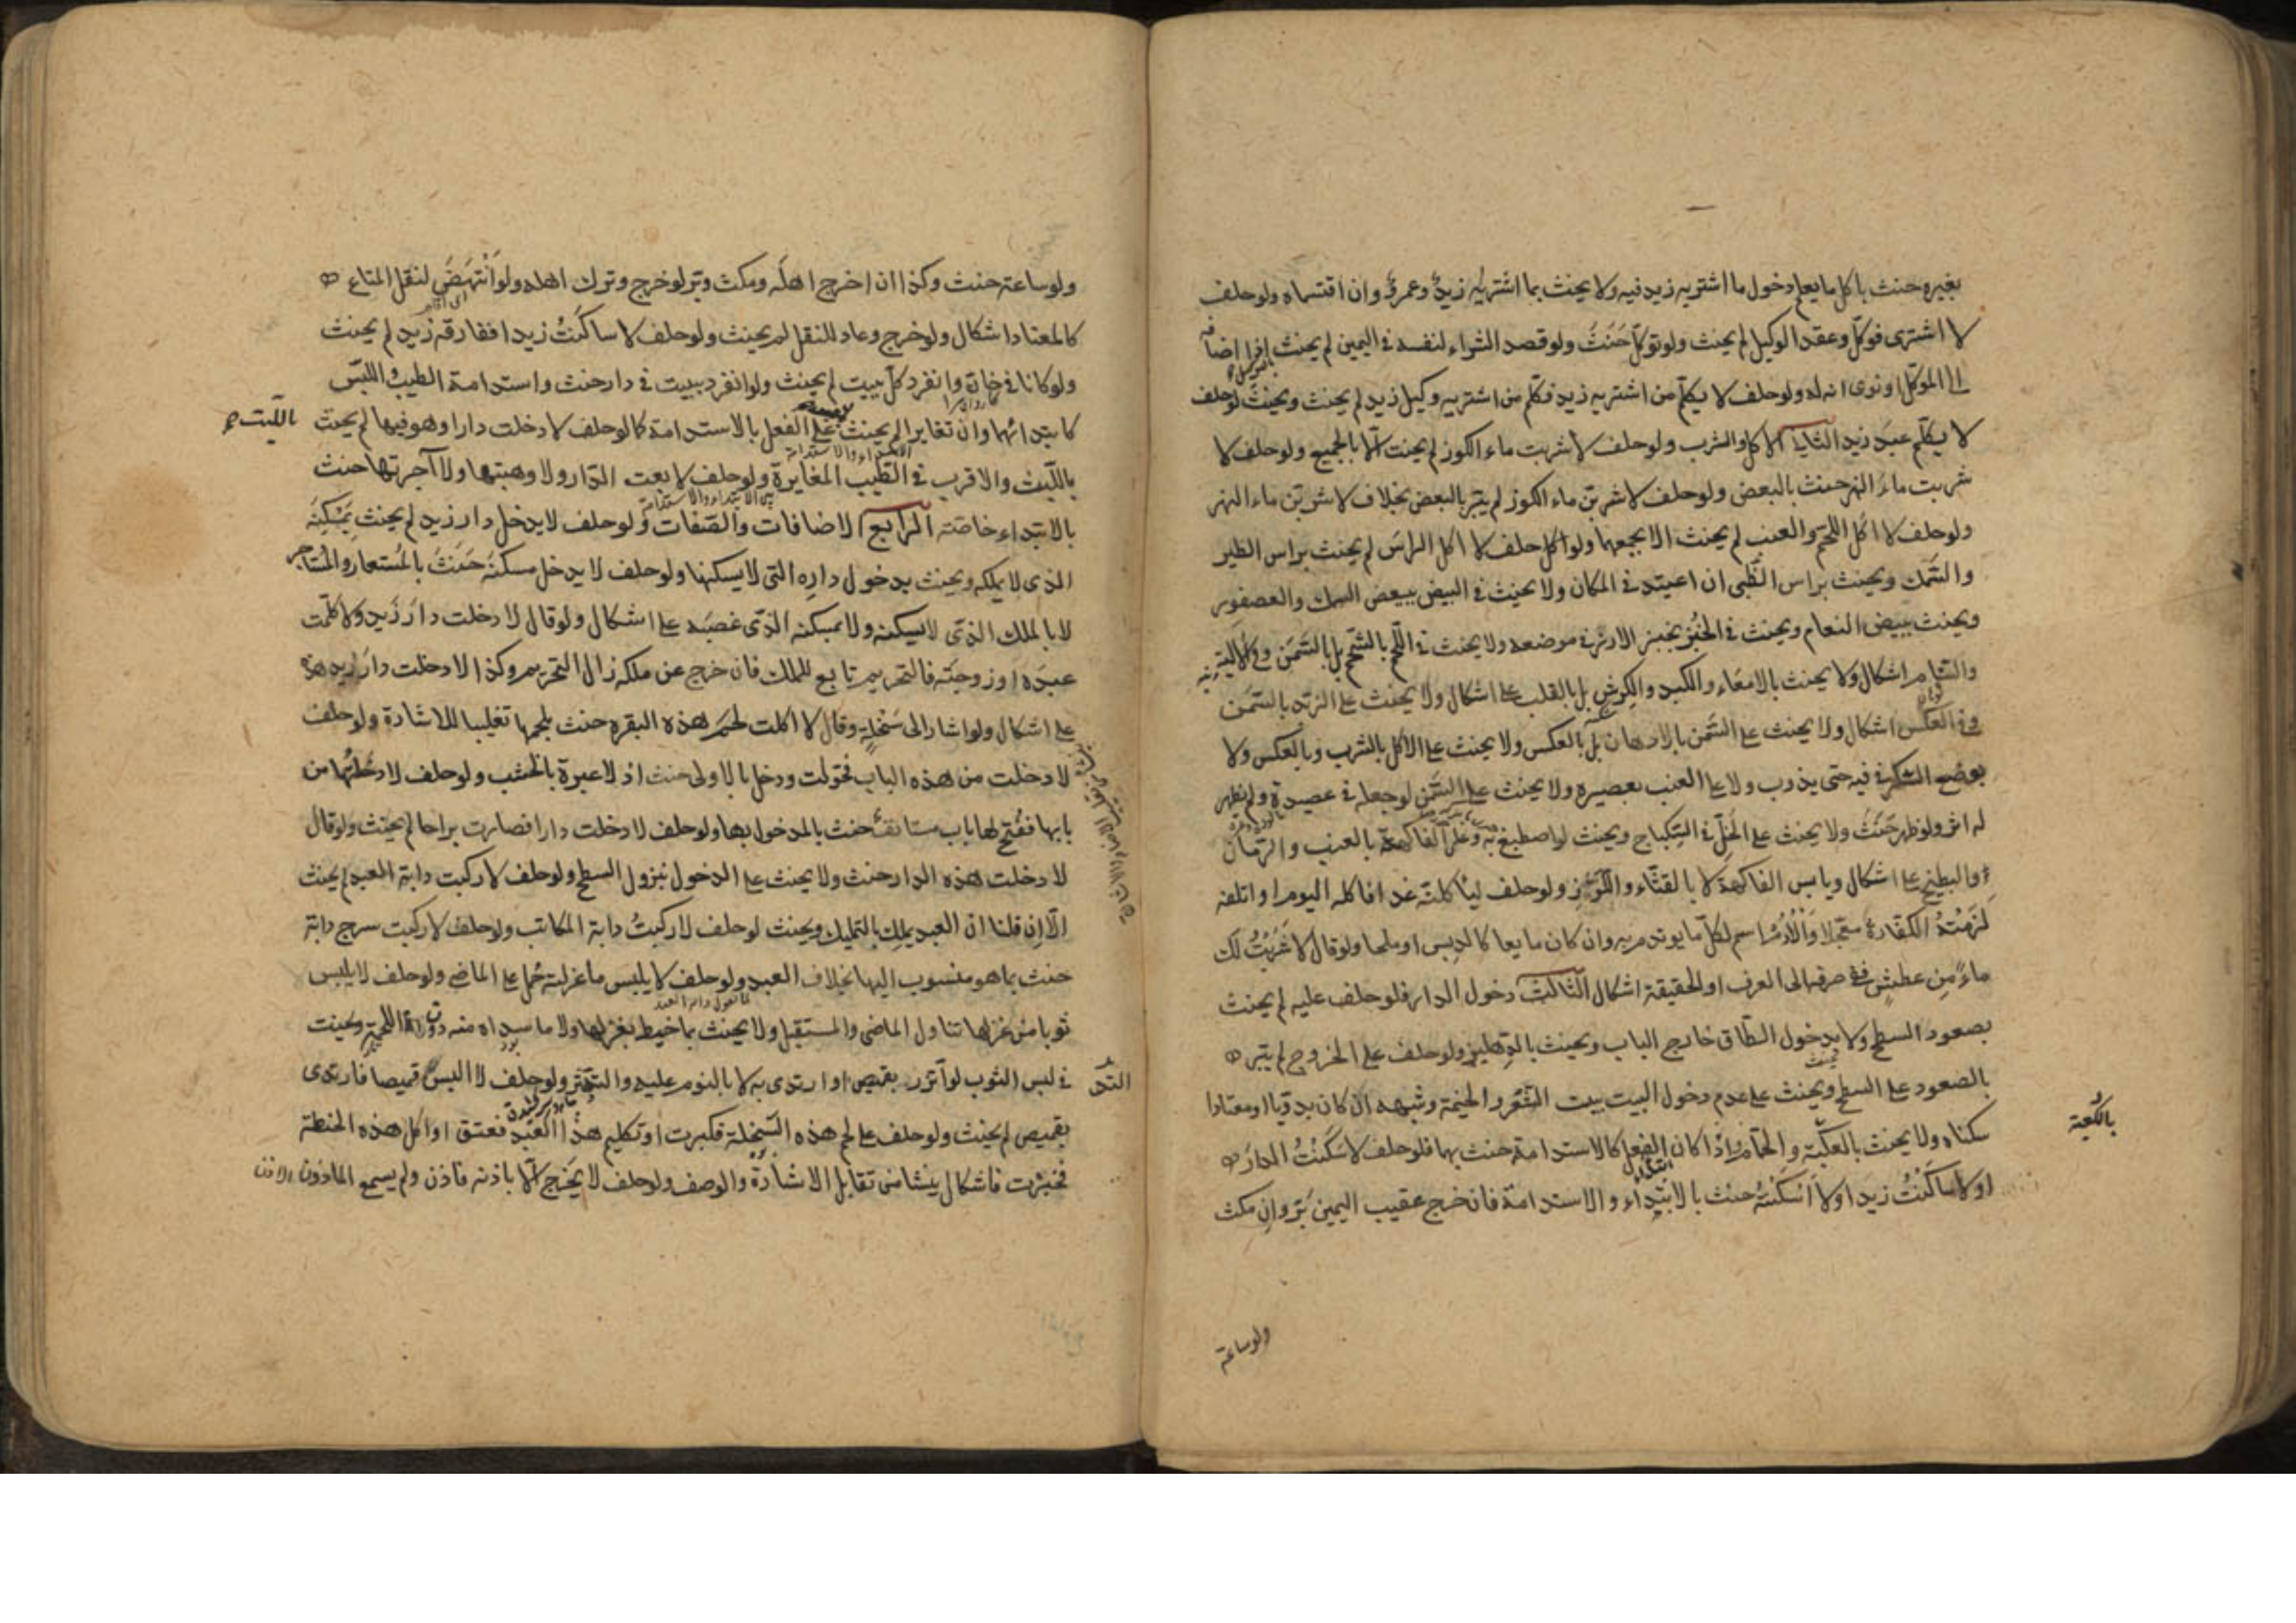 بغيره حنث باكل ما يعلم دخول ما اشتريه زيد فيه ولا يحنث بما اشتريه زيد وعمرو وان اقتسماه ولو حلف
لا اشترى فوكّل وعقد الوكيل لم يحنث ولو توكّل حَنَثَ ولو قصد الشراء لنفسه في اليمين لم يحنث اذا اضاف
الى الموكل او نوى انه له ولو حلف لا يكلّم من اشتريه زيد فكلّم من اشتريه وكيل زيد لم يحنث ويحنث لو حلف
لا يكلّم عبد زيد الثاني الاكل والشرب ولو حلف لا شربت ماء الكوز لم يحنث الّا بالجميع ولو حلف لا
شربت ماء النهر حنث بالبعض ولو حلف لاشربنّ ماء الكوز لم يبرّ بالبعض بخلاف لاشربنّ ماء النهر
ولو حلف لا اكل اللحم والعنب لم يحنث الا بجمعهما ولو حلف لا اكل الراس لم يحنث براس الطير
والسّمك ويحنث براس الظّبى ان اعتيد في المكان ولا يحنث في البيض ببيض السمك والعصفور
ويحنث ببيض النعام ويحنث في الخُبز بخبز الارز في موضعه ولا يحنث في اللّحم بالشّحم بل بالسّمن وفي الالية
والسّنام اشكال ولا يحنث بالامعاء والكبد والكرش بل بالقلب على اشكال ولا يحنث على الزبد بالسّمن
وفي العكس اشكال ولا يحنث على السّمن بالادهان بل بالعكس ولا يحنث على الاكل بالشرب وبالعكس ولا
بوضع السّكر في فيه حتى يذوب ولا على العنب بعصيره ولا يحنث على السّمن لو جعله في عصيدة ولم يظهر
له اثر ولو ظهر حَنَثَ ولا يحنث على الخلّ في السّكباج ويحنث لو اصطبغ به وعلى الفاكهة بالعنب والرّمان
والبطيخ على اشكال ويابس الفاكهة لا بالقثّاء والكرّز ولو حلف لياكلنّه غدا فاكله اليوم او اتلفه
لَزِمَتْهُ الكفّارة معجّلا والاُدُمُ اسم لكلّ ما يوتدم به وان كان مايعا كالدبس او ملحا ولو قال لا شَرِبْتُ لك
ماءً مِن عطشٍ ففي صرفه الى العرف او الحقيقة اشكال الثالث دخول الدار فلو حلف عليه لم يحنث
بصعود السطح ولا بدخول الطّاق خارج الباب ويحنث بالدِهليز ولو حلف على الخروج لم يبر
بالصّعود على السطح ويحنث على عدم دخول البيت ببيت الشّعر والخيمة وشبهه ان كان بدويّا او معتادا
سكناه ولا يحنث بالكعبة والحمّام واذا كان الفعل كالاستدامة حنث بهما فلو حلف لا سَكَنْتُ الدارَ
او لا ساكَنْتُ زيدا او لا اسْكَنْتُه حنث بالابتداء والاستدامة فان خرج عقيب اليمين بَرَّ وان مكث
بالكعبة
ولو ساعة
ولو ساعة حنث وكذا ان اخرج اهلَه ومكث وبَرّ لو خرج وترك اهله ولو انْتَهَضَ لنقل المتاع
كالمعتاد اشكال ولو خرج وعاد للنقل لم يحنث ولو حلف لا ساكَنْتُ زيدا ففارقه زيد لم يحنث
ولو كانا في خان وانفرد كلّ ببيت لم يحنث ولو انفرد ببيت في دار حنث واستدامة الطيب واللبّس
كابتدائهما وان تغايرا لم يحنث على الفعل بالاستدامة كما لو حلف لا دخلت دارا وهو فيها لم يحنث
باللّبث
باللّبث والاقرب في الطّيب المغايرة ولو حلف لا بعت الدّار ولا وهبتها ولا آجرتها حنث
بالابتداء خاصّة الرابع الاضافات والصّفات ولو حلف لا يدخل دار زيد لم يحنث بمسكنه
الذى لا يملكه ويحنث بدخول داره التى لا يسكنها ولو حلف لا يدخل مسكنه حَنَثَ بالمُستعار والمُستاجر
لا بالملك الذى لا يسكنه ولا بمسكنه الذى غصبه على اشكال ولو قال لا دخلت دار زَيدٍ ولا كلّمت
عبدَه او زوجتَه فالتحريم تابع للملك فان خرج عن ملكه زال التحريم وكذا لا دخلت دار زيد هذه
على اشكال ولو اشار الى سَخْلةٍ وقال لا اكلت لحمَ هذه البقرة حنث بلحمها تغليبا للاشارة ولو حلف
لا دخلت من هذه الباب فحَوّلت ودخل بالاولى حنث اذ لا عبرة بالخشب ولو حلف لا دخَلتُها من
بابها ففُتح لها باب مستانف حنث بالدخول بها ولو حلف لا دخلت دارا فصارت براحا لم يحنث ولو قال
لا دخلت هذه الدار حنث ولا يحنث على الدخول بنزول السطح ولو حلف لا ركبت دابّة العبد لم يحنث
الّا ان قلنا انّ العبد يملك بالتمليك ويحنث لو حلف لا ركبتُ دابة المكاتب ولو حلف لا ركبت سرج دابة
حنث بما هو منسوب اليها بخلاف العبد ولو حلف لا يلبس ما غزلته حُمل على الماضى ولو حلف لا يلبس
ثوبا من غزلها تناول الماضى والمستقبل ولا يحنث بما خيط بغزلها ولا ما سداه منه دون اللحمة ويحنث
في لبس الثوب لو اتّزر بقميص او ارتدى به لا بالنوم عليه والتدثّر ولو حلف لا البس قميصا فارتدى
بقميص لم يحنث ولو حلف على لحم هذه السّخلة فكبرت او تكليم هذا العبد فعتق او اكل هذه الحنطة
فخبزت فاشكال ينشا من تقابل الاشارة والوصف ولو حلف لا يَخرج الّا باذنه فاذن ولم يسمع الماذون الاذن